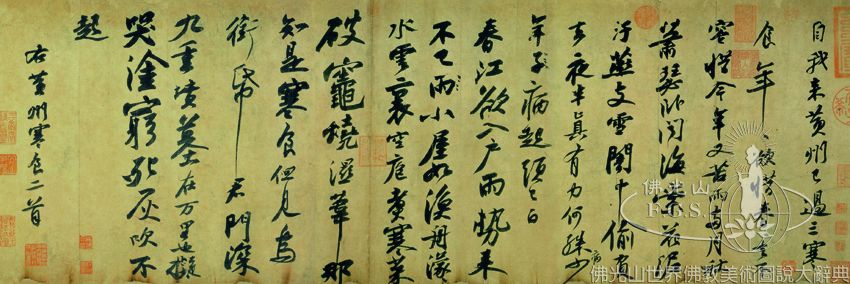 自我來黃州已過三寒
食年〻欲惜春春去不
容惜今年又苦雨兩月秋
蕭瑟臥聞海棠花泥
汙燕支雪闇中偷負
去夜半真有力何殊病少
年子病起頭已白
春江欲入戶雨勢來
不已雨小屋如漁舟濛〻
水雲裏空庖煮寒菜
破竈燒濕葦那
知是寒食但見烏
銜帋君門深
九重墳墓在万里也擬
哭塗窮死灰吹不
起
右黃州寒食二首
佛光山
F.G.S.
佛光山世界佛教美術圖說大辭典